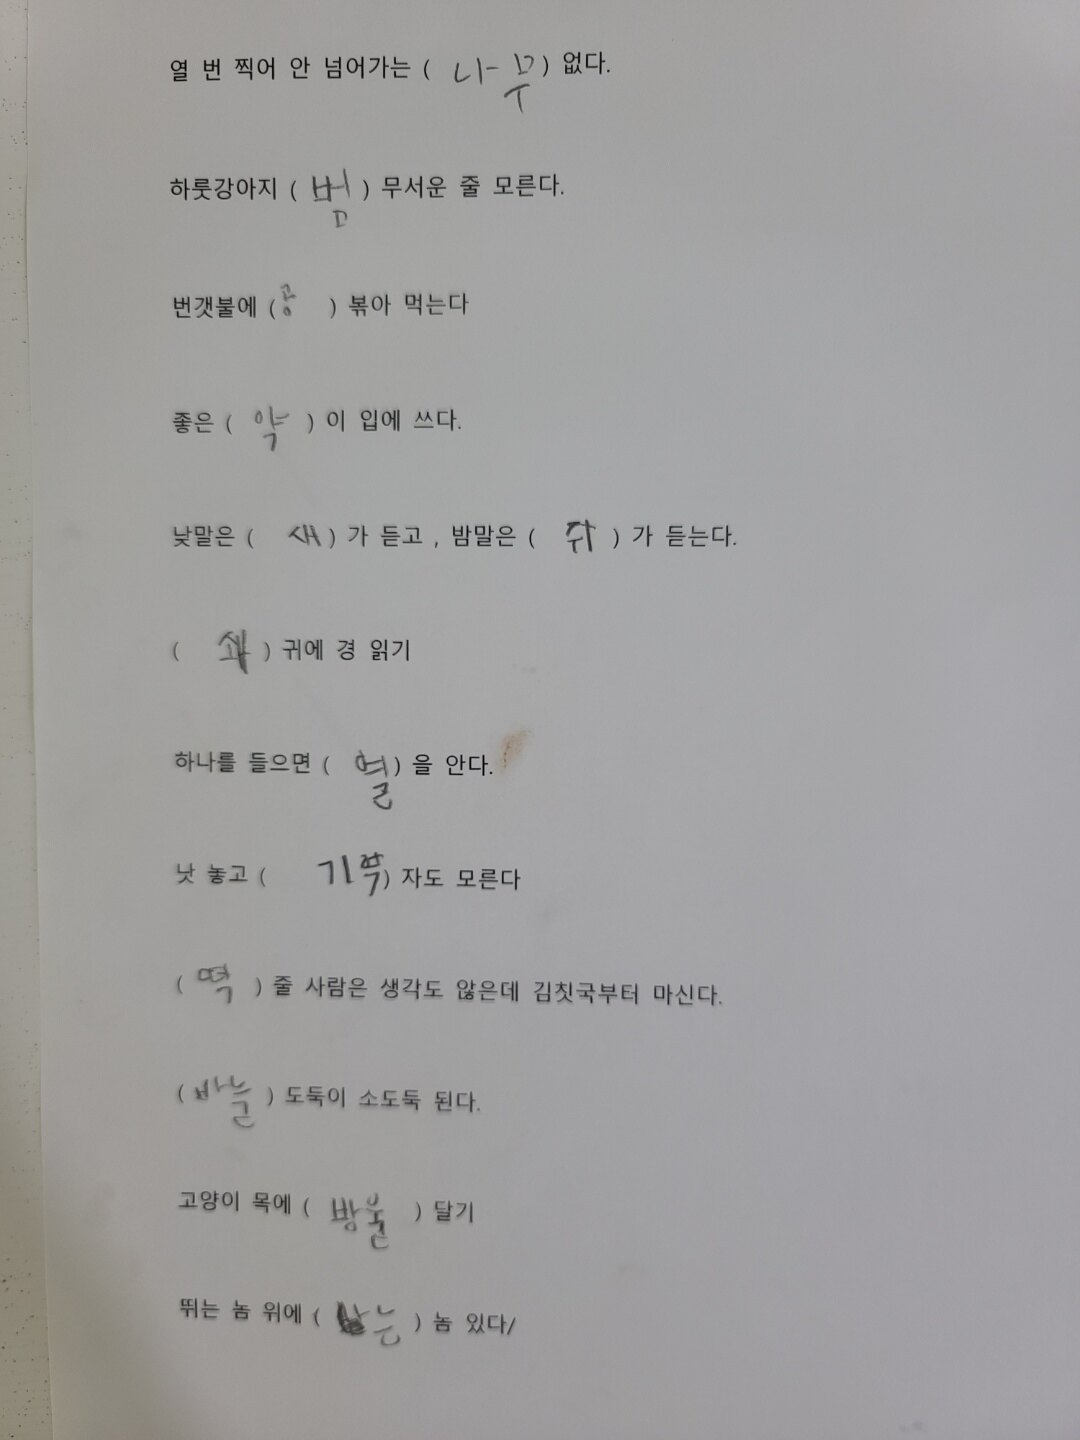 열 번 찍어 안 넘어가는 ( 나무 ) 없다.
하룻강아지 ( 범 ) 무서운 줄 모른다.
번갯불에 ( 콩 ) 볶아 먹는다
좋은 ( 약 ) 이 입에 쓰다.
낮말은 ( 새 ) 가 듣고 , 밤말은 ( 쥐 ) 가 듣는다.
( ) 귀에 경 읽기
하나를 들으면 ( 열 ) 을 안다.
낫 놓고 ( ) 자도 모른다
( 떡 ) 줄 사람은 생각도 않은데 김칫국부터 마신다.
( 바늘 ) 도둑이 소도둑 된다.
고양이 목에 ( 방울 ) 달기
뛰는 놈 위에 ( ) 놈 있다/